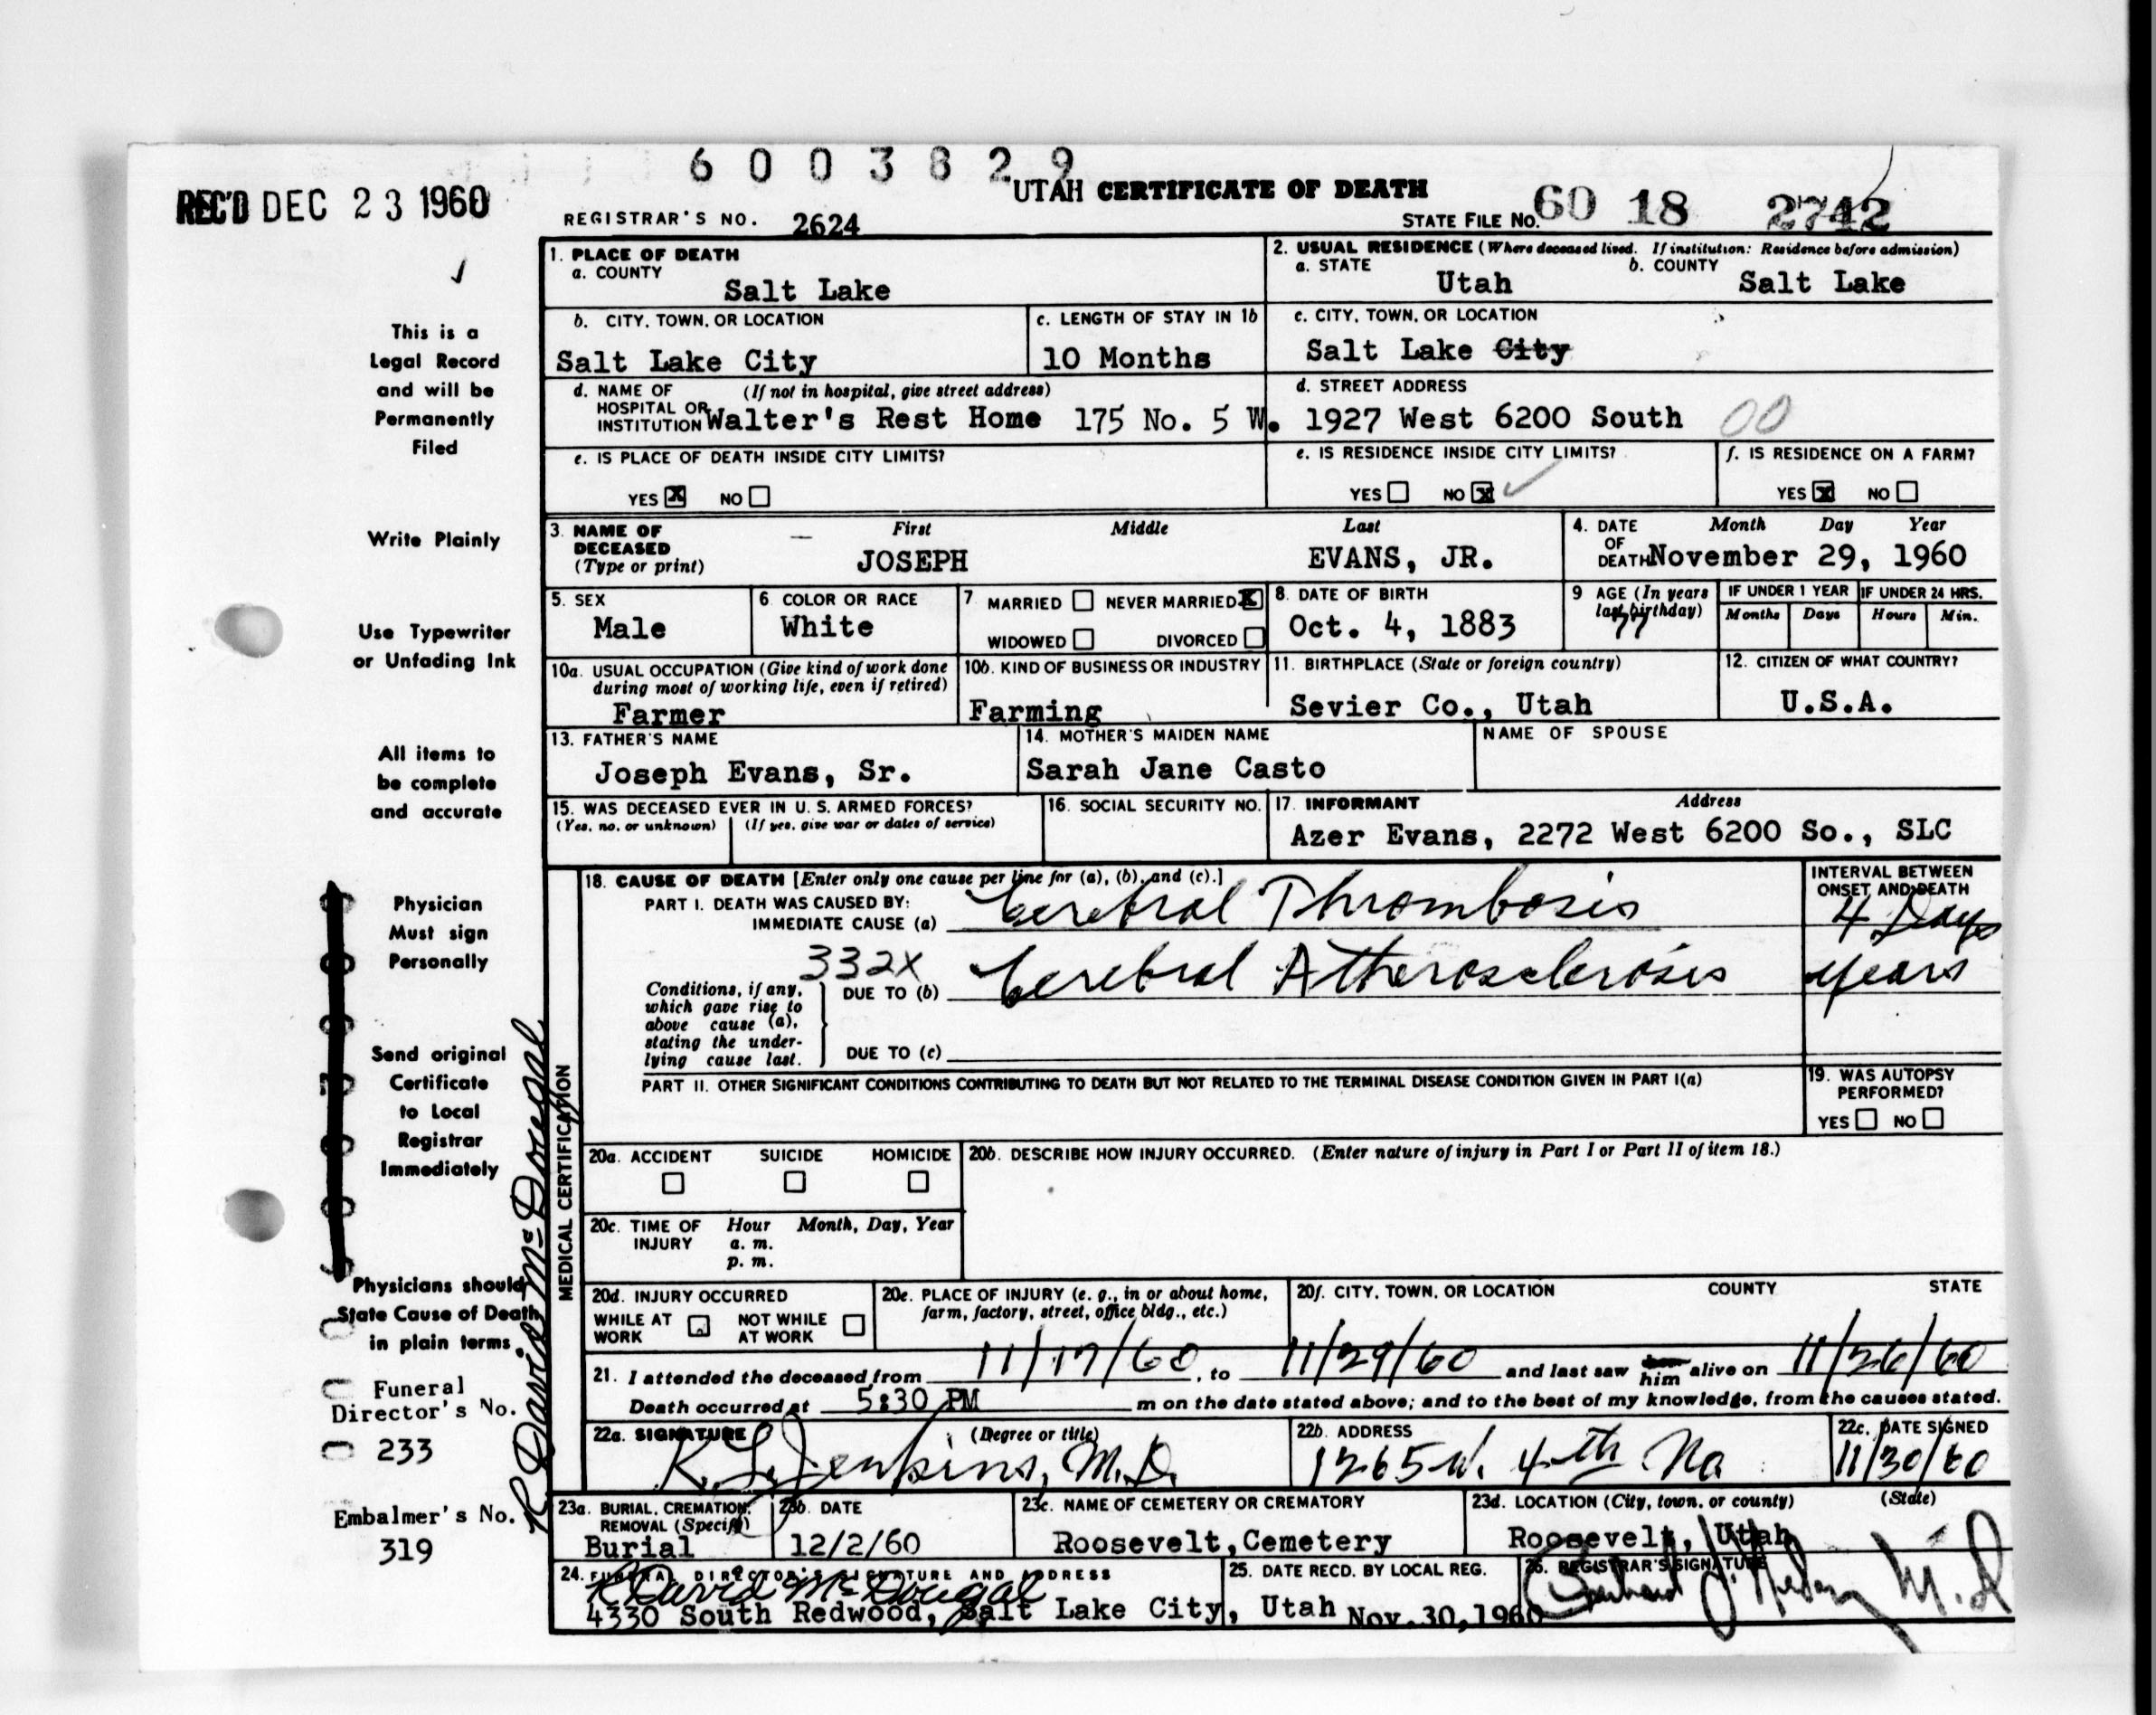 6 0 0 3 8 2 9
REC'D DEC 2 3 1960
UTAH CERTIFICATE OF DEATH
REGISTRAR'S NO. 2624
STATE FILE NO. 60 18 2742
1. PLACE OF DEATH
a. COUNTY
Salt Lake
2. USUAL RESIDENCE (Where deceased lived. If institution: Residence before admission)
a. STATE b. COUNTY
Utah Salt Lake
b. CITY, TOWN, OR LOCATION
Salt Lake City
c. LENGTH OF STAY IN 1b
10 Months
c. CITY, TOWN, OR LOCATION
Salt Lake City
d. NAME OF (If not in hospital, give street address)
HOSPITAL OR
INSTITUTION Walter's Rest Home 175 No. 5 W.
d. STREET ADDRESS
1927 West 6200 South 00
e. IS PLACE OF DEATH INSIDE CITY LIMITS?
YES X NO
e. IS RESIDENCE INSIDE CITY LIMITS?
YES NO X
f. IS RESIDENCE ON A FARM?
YES X NO
3. NAME OF First Middle Last
DECEASED
(Type or print) JOSEPH EVANS, JR.
4. DATE Month Day Year
OF
DEATH November 29, 1960
5. SEX
Male
6. COLOR OR RACE
White
7. MARRIED NEVER MARRIED X
WIDOWED DIVORCED
8. DATE OF BIRTH
Oct. 4, 1883
9 AGE (In years
last birthday)
77
IF UNDER 1 YEAR IF UNDER 24 HRS.
Months Days Hours Min.
10a. USUAL OCCUPATION (Give kind of work done
during most of working life, even if retired)
Farmer
10b. KIND OF BUSINESS OR INDUSTRY
Farming
11. BIRTHPLACE (State or foreign country)
Sevier Co., Utah
12. CITIZEN OF WHAT COUNTRY?
U.S.A.
13. FATHER'S NAME
Joseph Evans, Sr.
14. MOTHER'S MAIDEN NAME
Sarah Jane Casto
NAME OF SPOUSE
15. WAS DECEASED EVER IN U. S. ARMED FORCES?
(Yes, no, or unknown) (If yes, give war or dates of service)
16. SOCIAL SECURITY NO.
17. INFORMANT Address
Azer Evans, 2272 West 6200 So., SLC
MEDICAL CERTIFICATION
18. CAUSE OF DEATH [Enter only one cause per line for (a), (b), and (c).]
PART I. DEATH WAS CAUSED BY:
IMMEDIATE CAUSE (a) Cerebral Thrombosis
INTERVAL BETWEEN
ONSET AND DEATH
4 Days
332X
Conditions, if any,
which gave rise to
above cause (a),
stating the under-
lying cause last.
DUE TO (b) Cerebral Atherosclerosis years
DUE TO (c)
PART II. OTHER SIGNIFICANT CONDITIONS CONTRIBUTING TO DEATH BUT NOT RELATED TO THE TERMINAL DISEASE CONDITION GIVEN IN PART I(a)
19. WAS AUTOPSY
PERFORMED?
YES NO
20a. ACCIDENT SUICIDE HOMICIDE
20b. DESCRIBE HOW INJURY OCCURRED. (Enter nature of injury in Part I or Part II of item 18.)
20c. TIME OF Hour Month, Day, Year
INJURY a. m.
p. m.
20d. INJURY OCCURRED
WHILE AT NOT WHILE
WORK AT WORK
20e. PLACE OF INJURY (e. g., in or about home,
farm, factory, street, office bldg., etc.)
20f. CITY, TOWN, OR LOCATION COUNTY STATE
21. I attended the deceased from 11/17/60, to 11/29/60 and last saw her him alive on 11/26/60
Death occurred at 5:30 PM m on the date stated above; and to the best of my knowledge, from the causes stated.
22a. SIGNATURE (Degree or title)
K. L. Jenkins, M.D.
22b. ADDRESS
1265 W. 4th No
22c. DATE SIGNED
11/30/60
23a. BURIAL, CREMATION,
REMOVAL (Specify)
Burial
23b. DATE
12/2/60
23c. NAME OF CEMETERY OR CREMATORY
Roosevelt, Cemetery
23d. LOCATION (City, town, or county) (State)
Roosevelt, Utah
24. FUNERAL DIRECTOR'S SIGNATURE AND ADDRESS
R David McDougal
4330 South Redwood, Salt Lake City, Utah
25. DATE RECD. BY LOCAL REG.
Nov. 30, 1960
26. REGISTRAR'S SIGNATURE
M.D
This is a
Legal Record
and will be
Permanently
Filed
Write Plainly
Use Typewriter
or Unfading Ink
All items to
be complete
and accurate
Physician
Must sign
Personally
Send original
Certificate
to Local
Registrar
Immediately
Physicians should
State Cause of Death
in plain terms.
Funeral
Director's No.
233
Embalmer's No.
319
R David McDougal